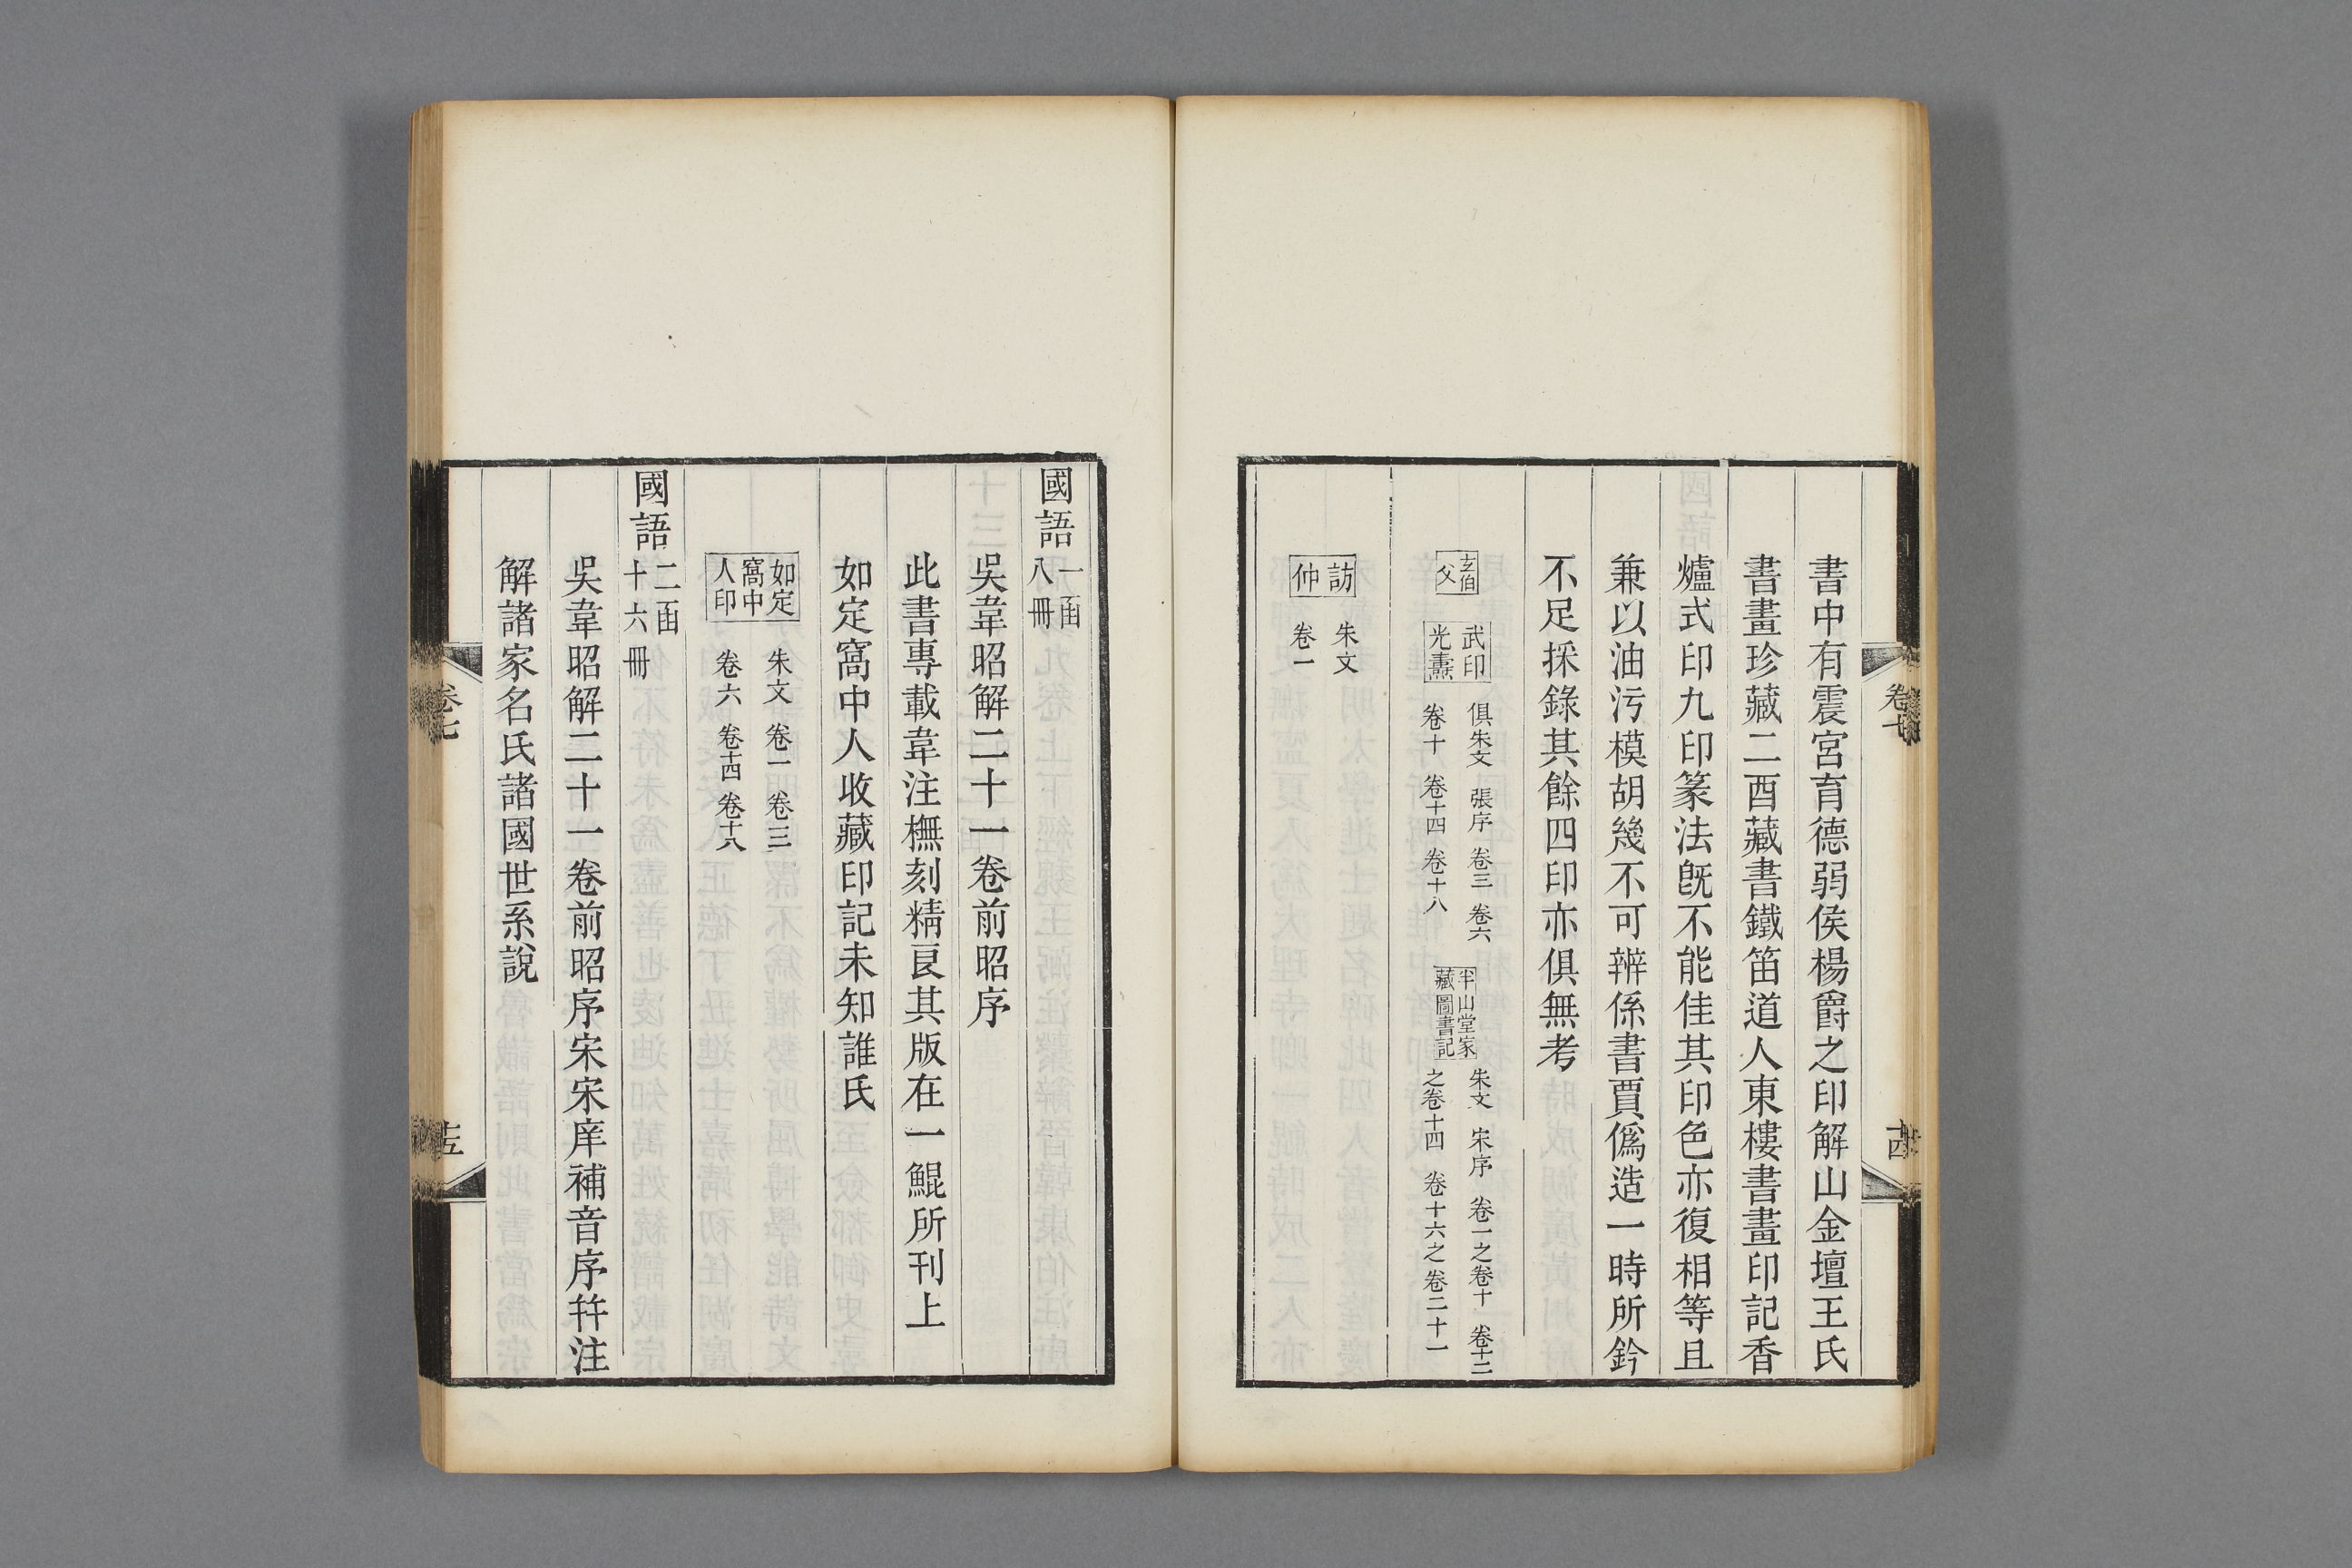 書中有震宮育德弱侯楊爵之印解山金壇王氏
書畫珍藏二酉藏書鐵笛道人東樓書畫印記香
爐式印九印篆法旣不能佳其印色亦復相等且
兼以油污模胡幾不可辨係書賈僞造一時所鈐
不足採錄其餘四印亦俱無考
玄伯父
武印光燾
俱朱文 張序 卷三 卷六
卷十 卷十四 卷十八
半山堂家藏圖書記
朱文 宋序 卷一之卷十 卷十二
之卷十四 卷十六之卷二十一
訪仲
朱文
卷一
卷七
十四
國語
一函
八冊
吳韋昭解二十一卷前昭序
此書專載韋注橅刻精良其版在一鯤所刊上
如定窩中人收藏印記未知誰氏
如定窩中人印
朱文 卷一 卷三
卷六 卷十四 卷十八
國語
二函
十六冊
吳韋昭解二十一卷前昭序宋宋庠補音序幷注
解諸家名氏諸國世系說
卷七
十五